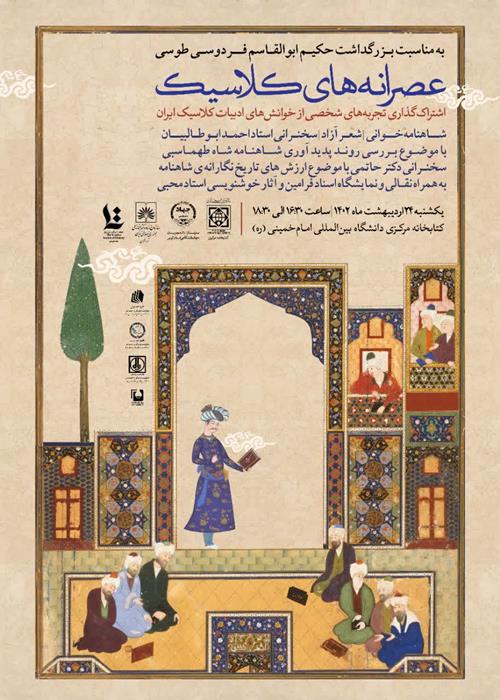 به مناسبت بزرگداشت حکیم ابوالقاسم فردوسی طوسی
عصرانه‌های کلاسیک
اشتراک‌گذاری تجربه‌های شخصی از خوانش‌های ادبیات کلاسیک ایران
شاهنامه‌خوانی | شعر آزاد | سخنرانی استاد احمد ابوطالبیان
با موضوع بررسی روند پدیدآوری شاهنامه شاه طهماسبی
سخنرانی دکتر حاتمی با موضوع ارزش‌های تاریخ‌نگارانه‌ی شاهنامه
به همراه نقالی و نمایشگاه اسناد فرامین و آثار خوشنویسی استاد محبی
یکشنبه ۲۴ اردیبهشت ماه ۱۴۰۲ | ساعت ۱۶:۳۰ الی ۱۸:۳۰
کتابخانه مرکزی دانشگاه بین‌المللی امام خمینی (ره)
جهاد